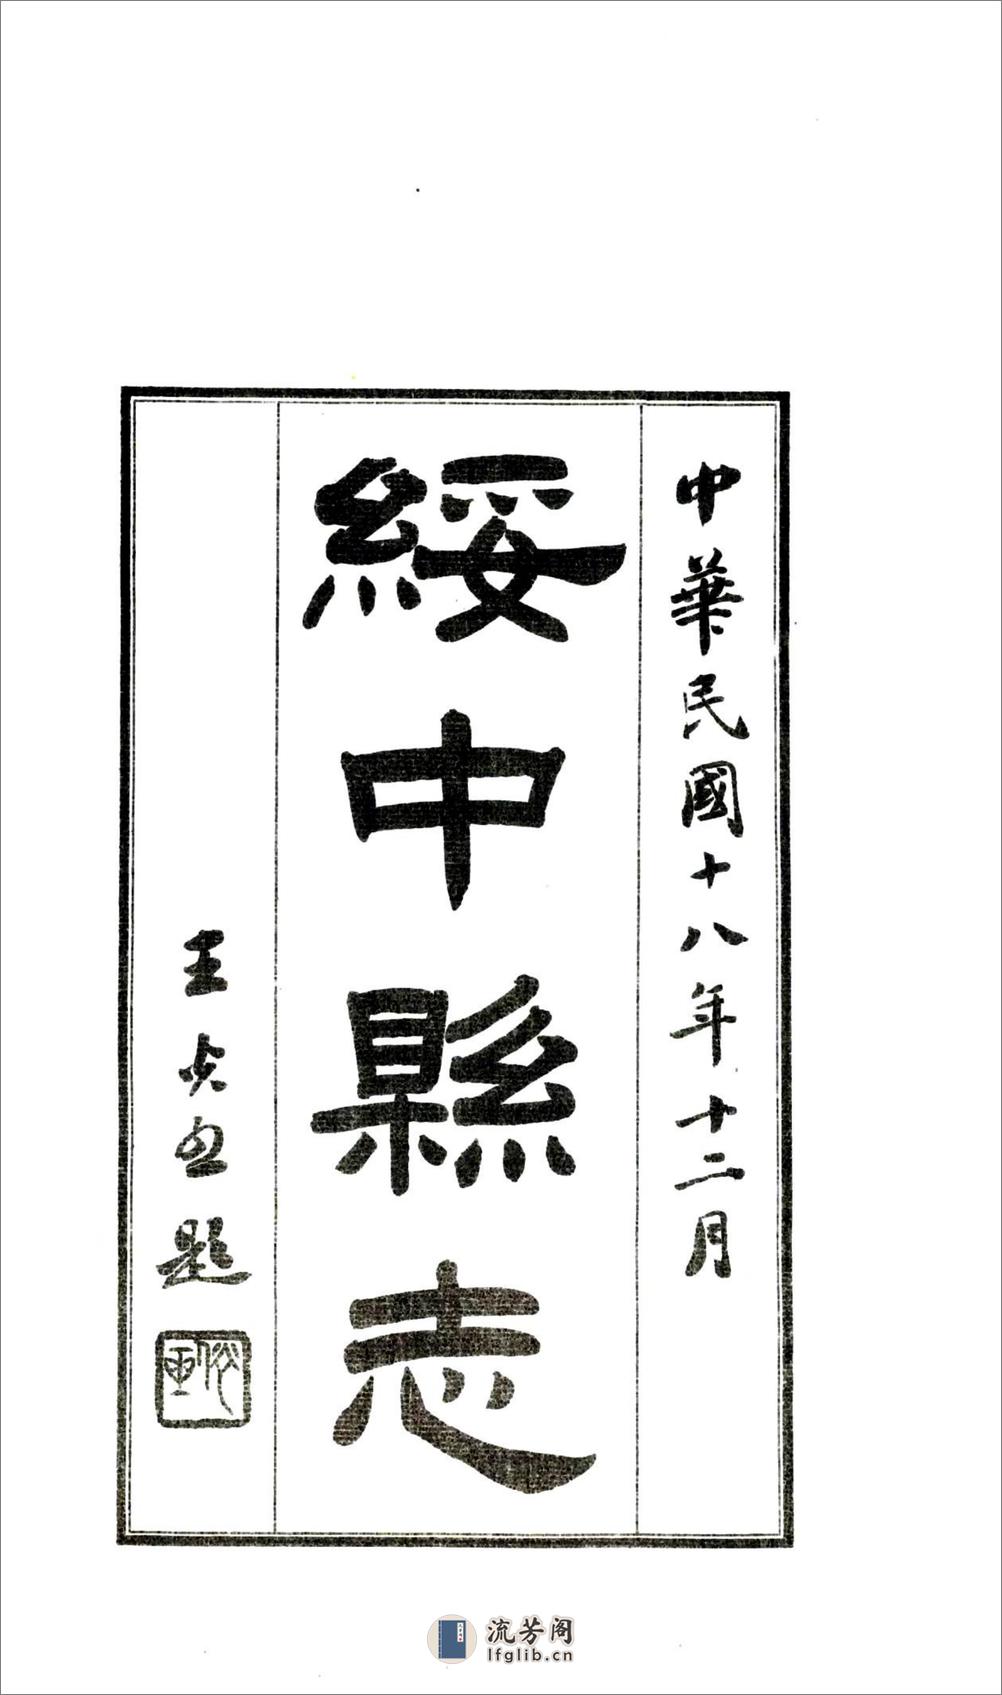 中華民國十八年十二月
綏中縣志
王 題
流芳阁
lfglib.cn